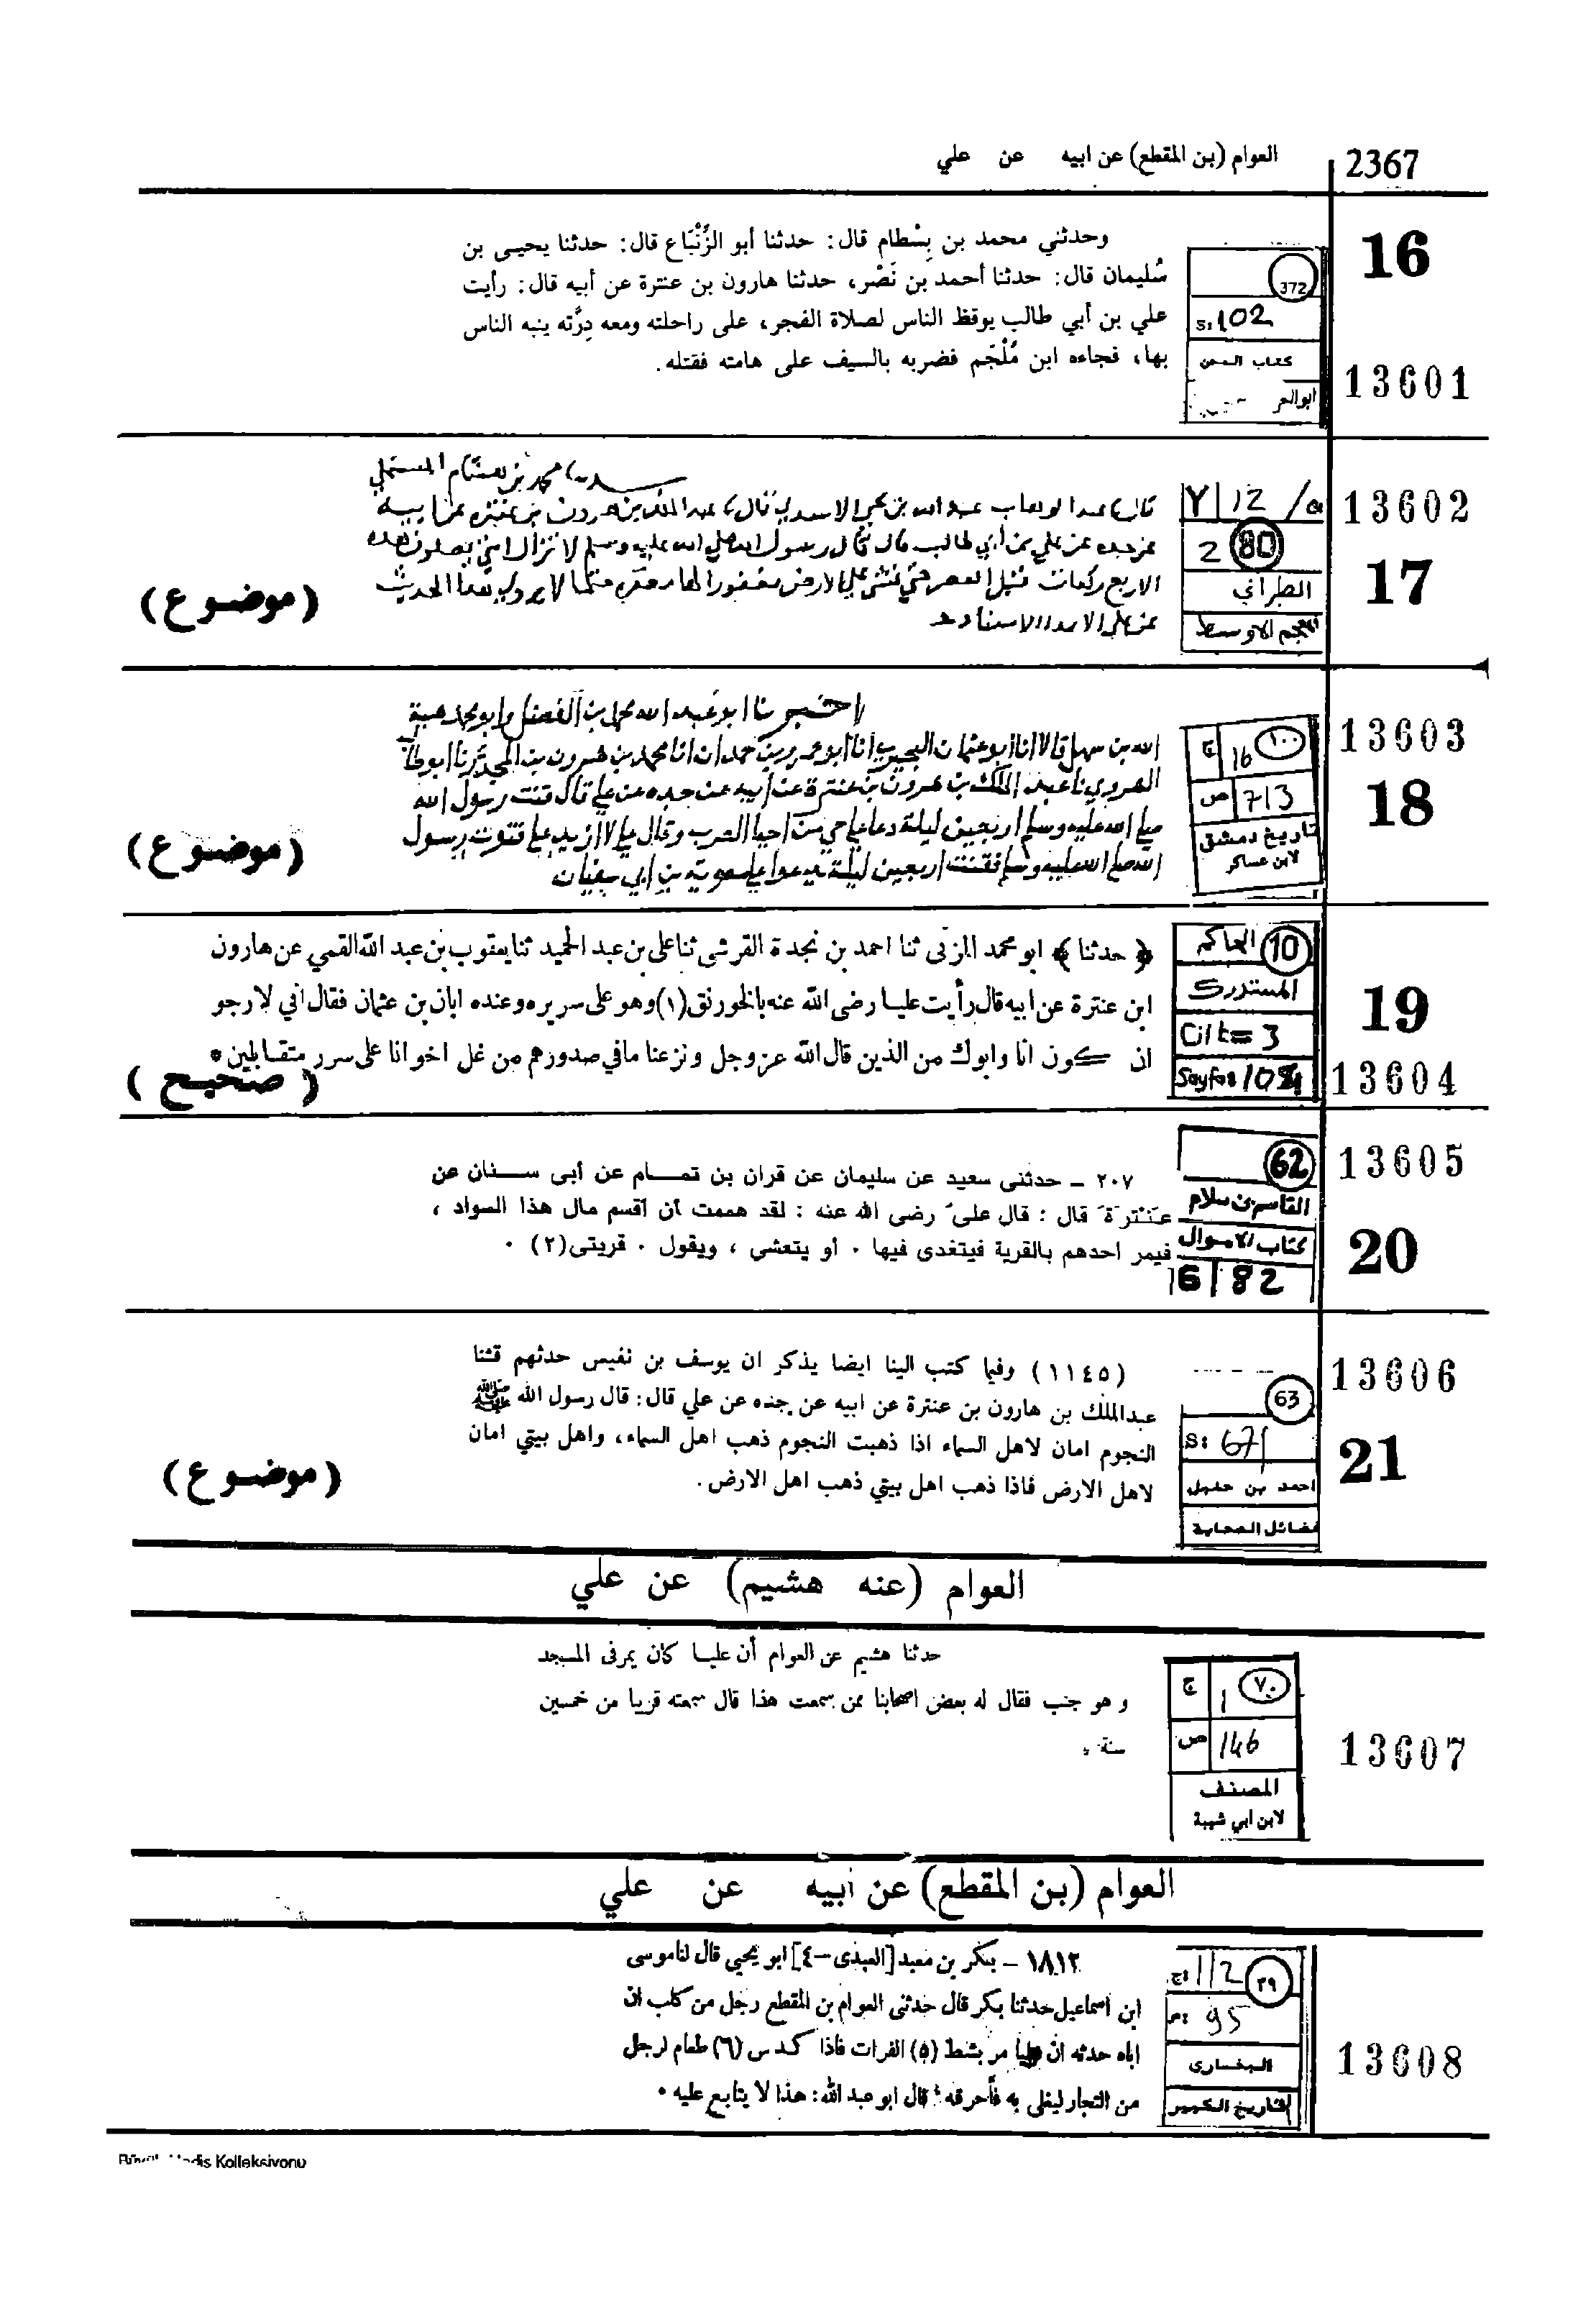 العوام (بن المقطع) عن ابيه عن علي
2367
16
وحدثني محمد بن بِسْطام قال: حدثنا أبو الزِّنْبَاع قال: حدثنا يحيى بن
سُليمان قال: حدثنا أحمد بن نَصْر، حدثنا هارون بن عنترة عن أبيه قال: رأيت
علي بن أبي طالب يوقظ الناس لصلاة الفجر، على راحلته ومعه دِرَّته ينبه الناس
بها، فجاءه ابن مُلْجَم فضربه بالسيف على هامته فقتله.
372
s: 102
كتاب المحن
13601
محمد بن هشام المستملي
قال عبد الله بن يحيى الاسدي قال عبد الملك بن هرون بن عنترة عن ابيه
عن جده عن علي بن أبي طالب قال قال رسول الله صلى الله عليه وسلم لا تزال امتي يصلون هذه
الاربع ركعات قبل العصر حتى تمشي على الارض مغفورا لها لا يروى هذا الحديث
عن علي الا بهذا الاسناد
(موضوع)
12/a
2 80
الطبراني
المعجم الاوسط
13602
17
اخبرنا ابو عبد الله محمد بن الفضل وابو محمد هبة
الله بن سهل قالا انا ابو عثمان البحيري انا ابو عمرو بن حمدان انا محمد بن هرون بن المجدر نا ابو
الهروي نا عبد الملك بن هرون بن عنترة عن ابيه عن جده عن علي قال قنت رسول الله
صلى الله عليه وسلم اربعين ليلة دعا على حي من احيا العرب وقال علي لا ازيد على قنوت رسول
الله صلى الله عليه وسلم فقنت اربعين ليلة يدعو على معوية بن ابي سفيان
(موضوع)
ج 16 ١٠٠
ص 713
تاريخ دمشق
لابن عساكر
13603
18
﴿ حدثنا ﴾ ابو محمد المزني ثنا احمد بن نجدة القرشي ثنا علي بن عبد الحميد ثنا يعقوب بن عبد الله القمي عن هارون
ابن عنترة عن ابيه قال رأيت عليا رضى الله عنه بالخورنق (١) وهو على سريره وعنده ابان بن عثمان فقال انى لارجو
ان كون انا وابوك من الذين قال الله عز وجل ونزعنا مافي صدورهم من غل اخوانا على سرر متقابلين *
(صحيح)
الحاكم 10
المستدرك
Cilt= 3
Sayfa:
19
13604
٢٠٧ ـ حدثنى سعيد عن سليمان عن قران بن تمام عن أبى سنان عن
عَنْتَرَةَ قال : قال علىّ رضى الله عنه : لقد هممت أن أقسم مال هذا السواد ،
فيمر احدهم بالقرية فيتغدى فيها ٠ أو يتعشى ، ويقول ٠ قريتى (٢) ٠
62
القاسم بن سلام
كتاب الاموال
82
13605
20
(١١٤٥) وفيما كتب الينا ايضا يذكر ان يوسف بن نفيس حدثهم قثنا
عبدالملك بن هارون بن عنترة عن ابيه عن جده عن علي قال: قال رسول الله ﷺ
النجوم امان لاهل السماء اذا ذهبت النجوم ذهب اهل السماء، واهل بيتي امان
لاهل الارض فاذا ذهب اهل بيتي ذهب اهل الارض.
(موضوع)
63
s: 671
احمد بن حنبل
فضائل الصحابة
13606
21
العوام (عنه هشيم) عن علي
حدثنا هشيم عن العوام أن عليا كان يمر فى المسجد
و هو جنب فقال له بعض اصحابنا ممن سمعت هذا قال سمعته قريبا من خمسين
سنة
ج 1 ٧٠
ص 146
المصنف
لابن ابي شيبة
13607
العوام (بن المقطع) عن أبيه عن علي
١٨١٢ – بكر بن معبد [العبدى-٤] ابو يحيى قال لنا موسى
ابن اسماعيل حدثنا بكر قال حدثنى العوام بن المقطع رجل من كلب ان
اباه حدثه ان عليا مر بشط (٥) الفرات فاذا كدس (٦) طعام لرجل
من التجار ليغلى به فأحرقه، قال ابو عبد الله: هذا لا يتابع عليه ٠
ج: 1/2 ٣٩
ص: 95
البخارى
التاريخ الكبير
13608
Hadis Kolleksiyonu